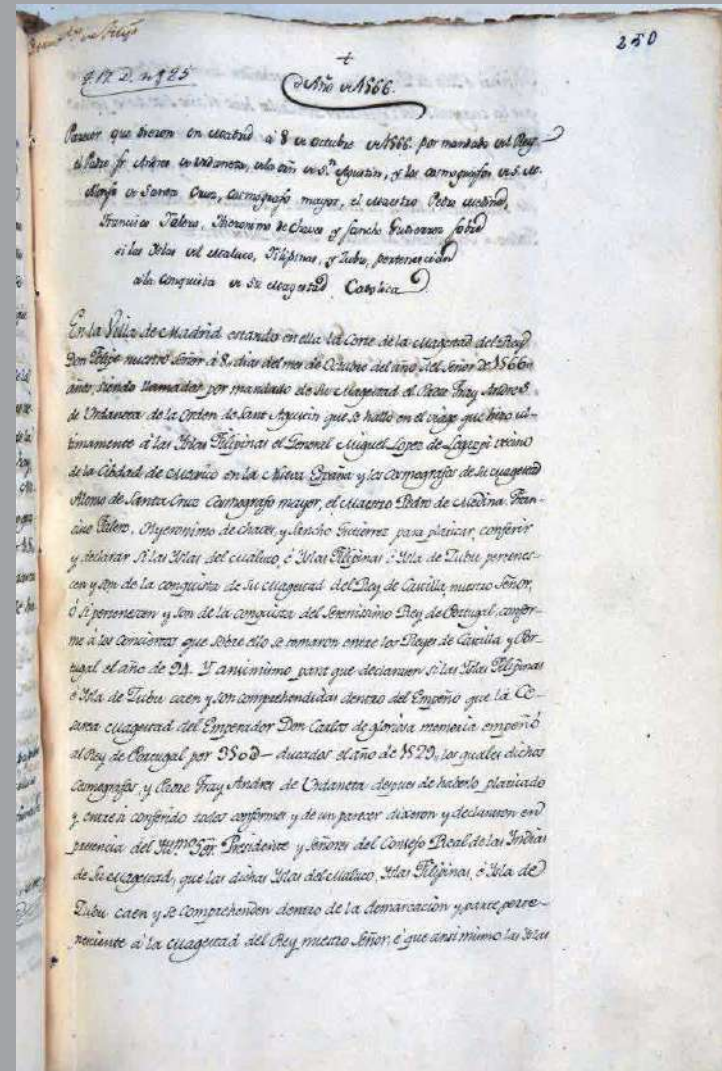 250
✝
de Año de 1566.
Parecer que dieron en Madrid à 8 de octubre de 1566. por mandado del Rey.
el Padre fr. Andres de Urdaneta, dela orñ de Sn. Agustin, y los cosmografos de S. M.
Alonso de Santa Cruz, cosmografo mayor, el Maestro Pedro Medina,
Francisco Falero, Jheronimo de Chaves y Sancho Gutierrez sobre
si las Yslas del Maluco, Filipinas, y Zubu, pertenecian
ala conquista de Su Magestad Catolica
En la Villa de Madrid estando en ella la Corte de la Magestad del Rey
Don Felipe nuestro Señor à 8. dias del mes de Octubre del año del Señor de 1566
años, siendo llamados por mandado de Su Magestad el Padre Fray Andres
de Urdaneta de la Orden de Sant Agustin que se hallo en el viage que hizo ul-
timamente à las Yslas Filipinas el General Miguel Lopez de Legazpi vecino
de la Cibdad de Mexico en la Nueva España y los Cosmografos de Su Magestad
Alonso de Santa Cruz Cosmografo mayor, el Maestro Pedro de Medina, Fran-
cisco Falero, Hyeronimo de Chaves, y Sancho Gutierrez para platicar, conferir
y declarar si las Yslas del Maluco, è Yslas Filipinas è Ysla de Zubu pertenes-
cen y son de la conquista de Su Magestad del Rey de Castilla nuestro Señor,
ò si pertenescen y son de la conquista del Serenissimo Rey de Portugal, confor-
me à los conciertos que sobre ello se tomaron entre los Reyes de Castilla y Por-
tugal el año de 94. Y ansimismo para que declarasen si las Yslas Filipinas
è Ysla de Zubu caen y son comprehendidas dentro del Empeño que la Ce-
sarea Magestad del Emperador Don Carlos de gloriosa memoria empeñò
al Rey de Portugal por 350D— ducados el año de 1529, los quales dichos
Cosmografos, y Padre Fray Andres de Urdaneta despues de haberlo platicado
y entre si conferido todos conformes y de un parecer dixeron y declararon en
presencia del Presidente y Señores del Consejo Real de las Yndias
de Su Magestad, que las dichas Yslas del Maluco, Yslas Filipinas, è Ysla de
Zubu caen y se comprehenden dentro de la demarcacion y parte perte-
neciente à la Magestad del Rey nuestro Señor, è que ansi mismo las Yslas